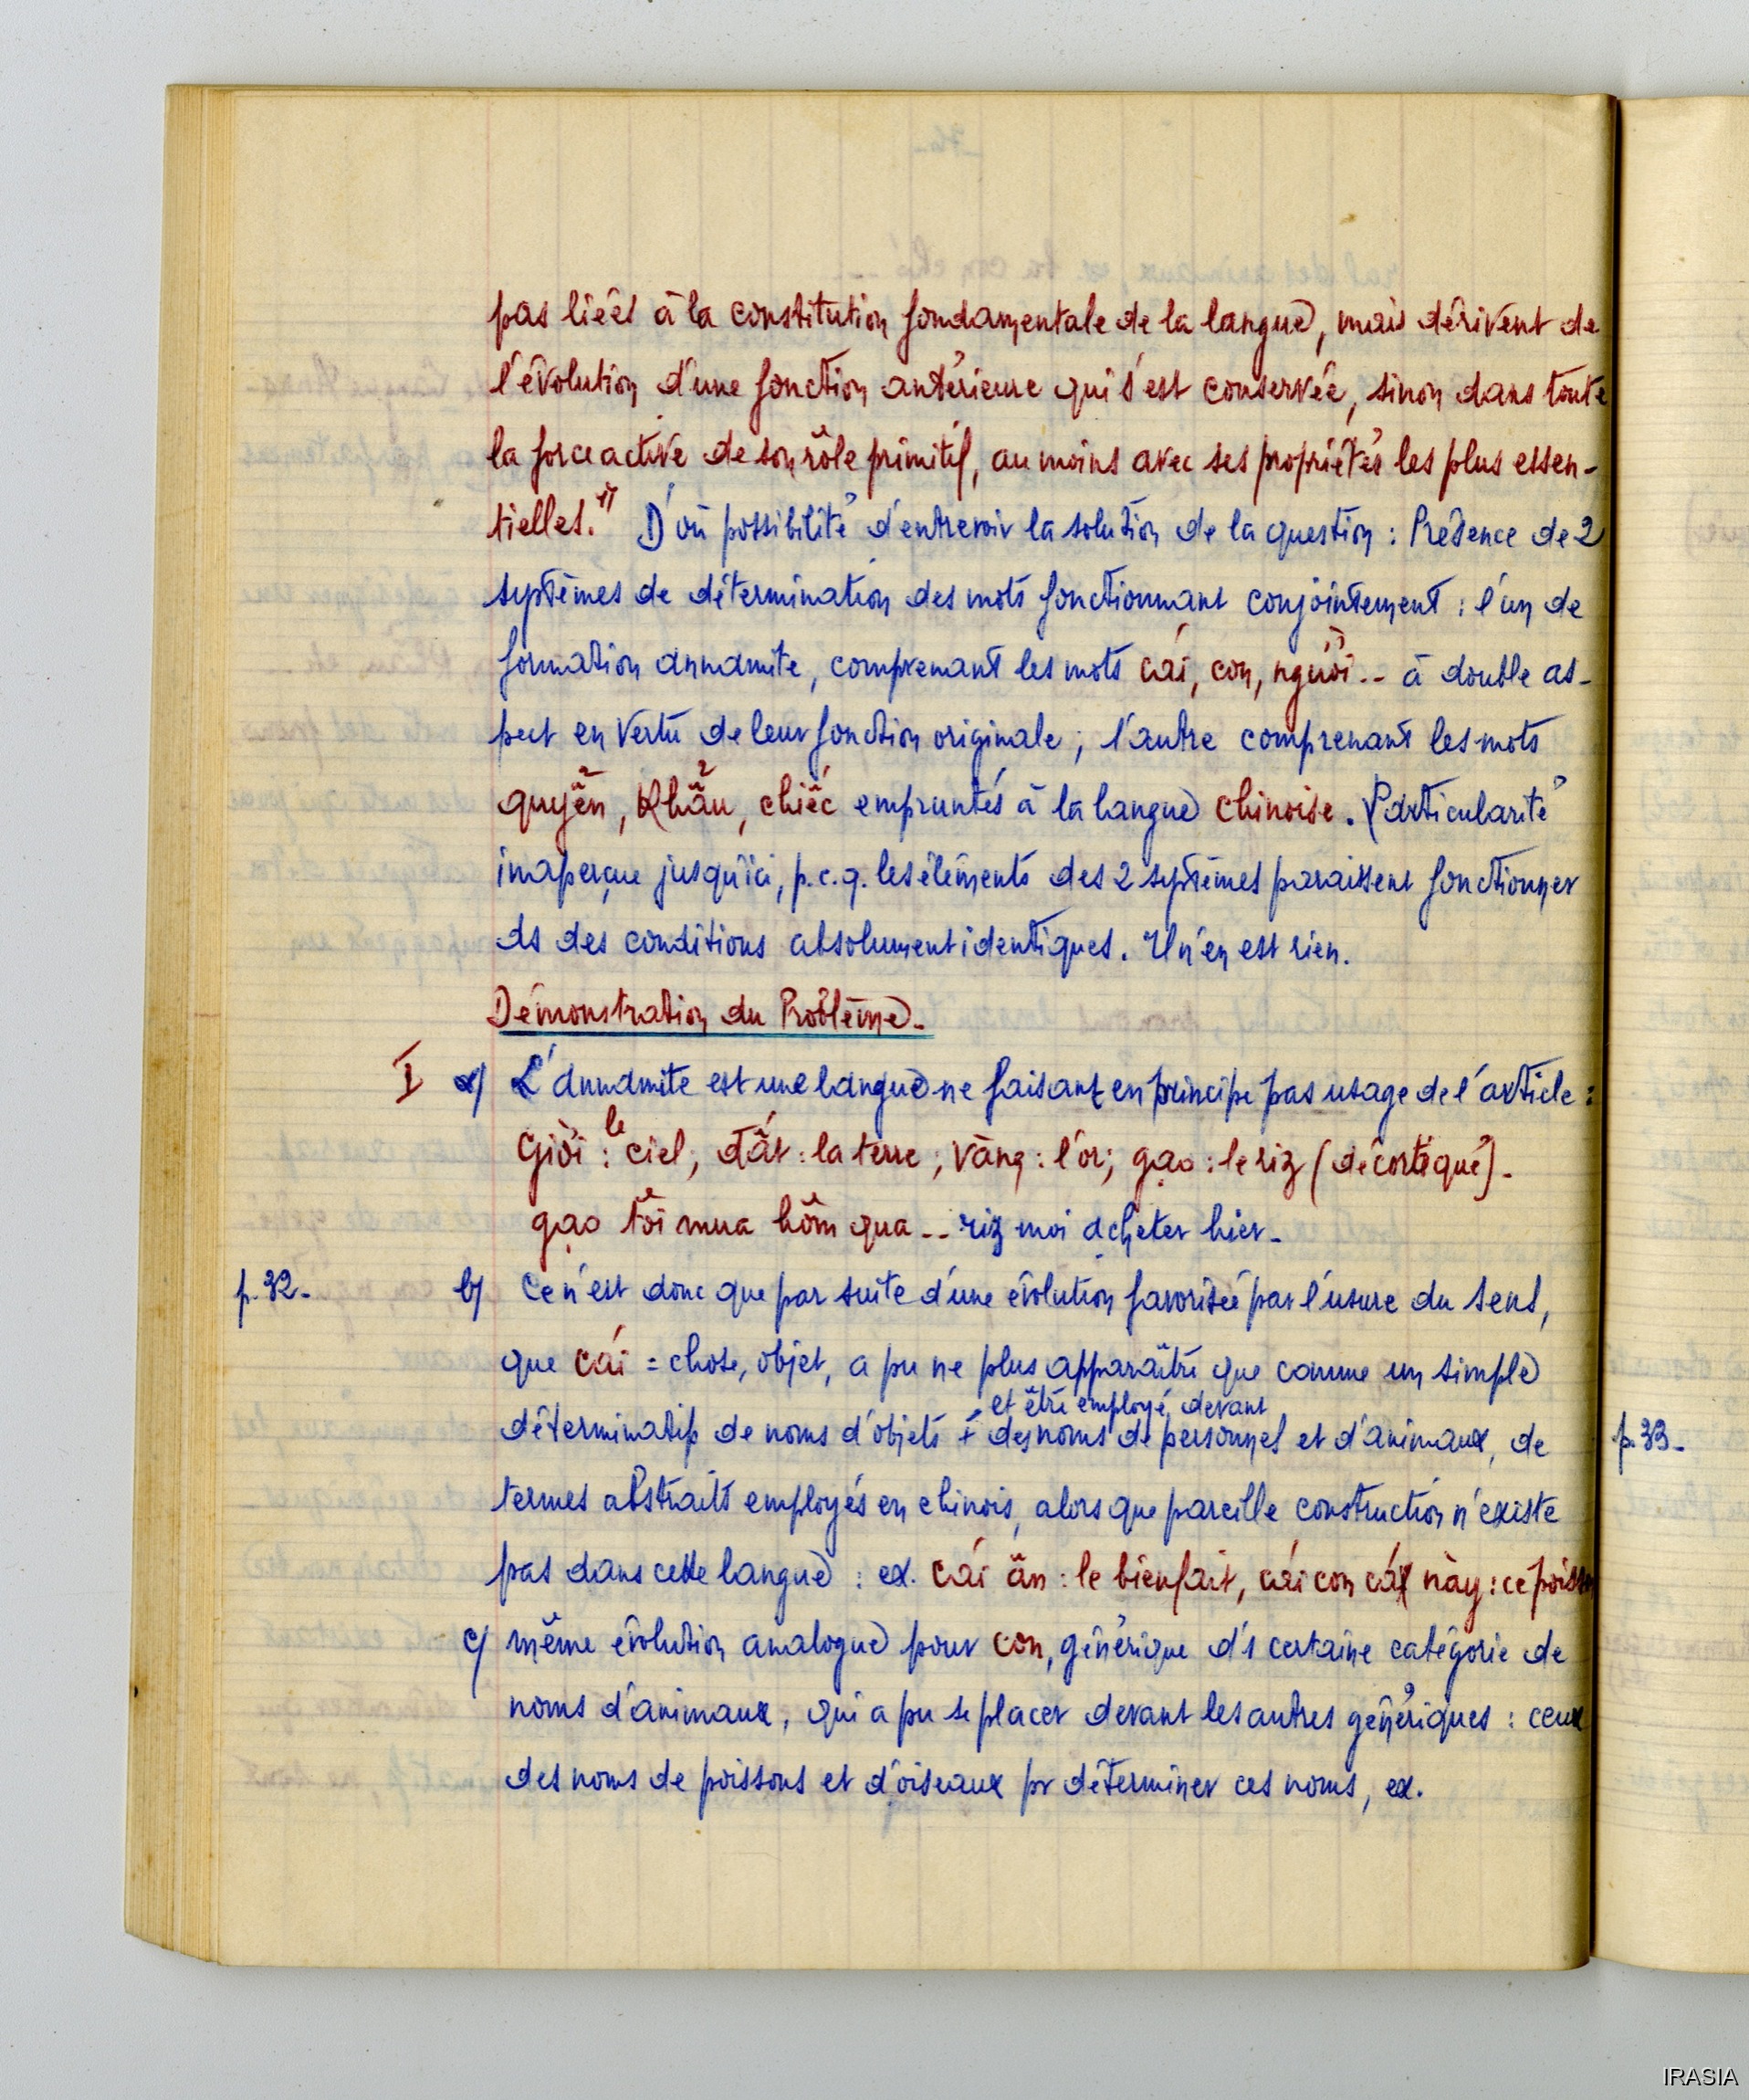 pas liées à la constitution fondamentale de la langue, mais dérivent de
l'évolution d'une fonction antérieure qui s'est conservée, sinon dans toute
la force active de son rôle primitif, au moins avec ses propriétés les plus essen-
tielles." D'où possibilité d'entrevoir la solution de la question : Présence de 2
systèmes de détermination des mots fonctionnant conjointement : l'un de
formation annamite, comprenant les mots cái, con, người -- à double as-
pect en vertu de leur fonction originale ; l'autre comprenant les mots
quyển, khẩu, chiếc empruntés à la langue chinoise. Particularité
inaperçue jusqu'ici, p.c.q. les éléments des 2 systèmes paraissent fonctionner
ds des conditions absolument identiques. Il n'en est rien.
Démonstration du Problème.
I a/ L'annamite est une langue ne faisant en principe pas usage de l'article :
Giời : le ciel ; đất : la terre ; vàng : l'or ; gạo : le riz (décortiqué).
gạo tôi mua hôm qua -- riz moi acheter hier.
p. 32. b/ Ce n'est donc que par suite d'une évolution favorisée par l'usure du sens,
que cái = chose, objet, a pu ne plus apparaître que comme un simple
et être employé devant
déterminatif de noms d'objets + des noms de personnes et d'animaux, de p. 33.
termes abstraits employés en chinois, alors que pareille construction n'existe
pas dans cette langue : ex. cái ân : le bienfait, cái con cá này : ce poisson
c/ même évolution analogue pour con, générique d'1 certaine catégorie de
noms d'animaux, qui a pu se placer devant les autres génériques : ceux
des noms de poissons et d'oiseaux pr déterminer ces noms, ex.
IRASIA